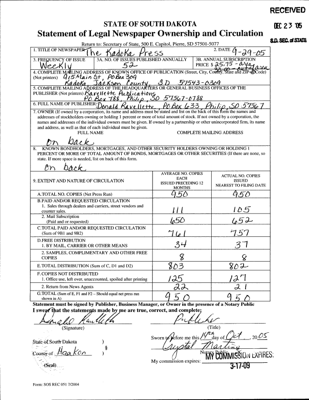 RECEIVED
DEC 23 '05
S.D. SEC. OF STATE
STATE OF SOUTH DAKOTA
Statement of Legal Newspaper Ownership and Circulation
Return to: Secretary of State, 500 E. Capitol, Pierre, SD 57501-5077
1. TITLE OF NEWSPAPER The Kadoka Press
2. DATE 9-29-05
3. FREQUENCY OF ISSUE Weekly
3A. NO. OF ISSUES PUBLISHED ANNUALLY 52
3B. ANNUAL SUBSCRIPTION PRICE
4. COMPLETE MAILING ADDRESS OF KNOWN OFFICE OF PUBLICATION
Kadoka Jackson County, SD 57543-0309
5. COMPLETE MAILING ADDRESS OF THE HEADQUARTERS OR GENERAL BUSINESS OFFICES OF THE
(Not printers) Ravellette Publications
PO Box 788, Philip, SD 57567-0788
6. FULL NAME OF PUBLISHER: Donald Ravellette PO Box 635 Philip, SD 57567
7. OWNER (If owned by a corporation, its name and address must be stated and also on the back of this form the names and
addresses of stockholders owning or holding 1 percent or more of total amount of stock. If not owned by a corporation, the
names and addresses of the individual owners must be given. If owned by a partnership or other unincorporated firm, its name
and address, as well as that of each individual must be given.
FULL NAME COMPLETE MAILING ADDRESS
On back
8. KNOWN BONDHOLDERS, MORTGAGEES, AND OTHER SECURITY HOLDERS OWNING OR HOLDING 1
PERCENT OR MORE OF TOTAL AMOUNT OF BONDS, MORTGAGES OR OTHER SECURITIES (If there are none, so
state. If more space is needed, list on back of this form.
On back
9. EXTENT AND NATURE OF CIRCULATION
AVERAGE NO. COPIES EACH ISSUED PRECEDING 12 MONTHS
ACTUAL NO. COPIES ISSUED NEAREST TO FILING DATE
A. TOTAL NO. COPIES (Net Press Run) 950 950
B. PAID AND/OR REQUESTED CIRCULATION
1. Sales through dealers and carriers, street vendors and
counter sales. 111 105
2. Mail Subscription
(Paid and/or requested) 650 652
C. TOTAL PAID AND/OR REQUESTED CIRCULATION
(Sum of 9B1 and 9B2) 761 757
D. FREE DISTRIBUTION
1. BY MAIL, CARRIER OR OTHER MEANS 34 37
2. SAMPLES, COMPLIMENTARY AND OTHER FREE
COPIES 8 8
E. TOTAL DISTRIBUTION (Sum of C, D1 and D2) 803 802
F. COPIES NOT DISTRIBUTED
1. Office use, left over, unaccounted, spoiled after printing 125 127
2. Return from News Agents 22 21
G. TOTAL (Sum of E, F1 and F2 - Should equal net press run
shown in A) 950 950
Statement must be signed by Publisher, Business Manager, or Owner in the presence of a Notary Public
I swear that the statements made by me are true, correct, and complete:
Publisher
(Signature) (Title)
State of South Dakota )
Sworn to before me this day of Oct 2005
County of Haakon )
Crystal Martin
(Seal)
My commission expires: MY COMMISSION EXPIRES:
3-17-09
Form: SOS REC 051 7/2004